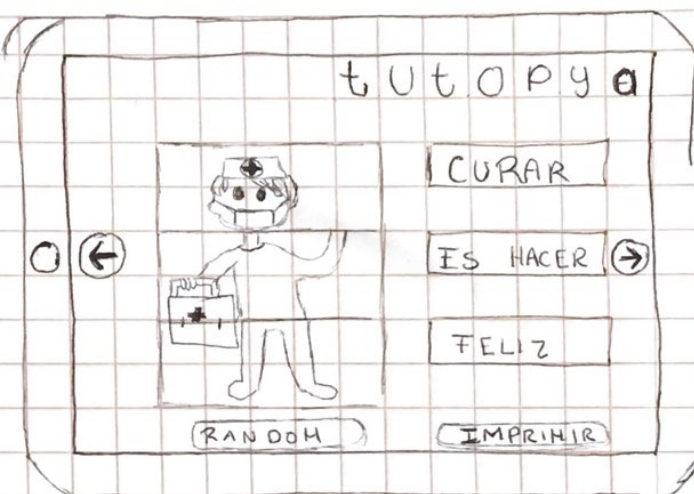 tUtOPya
CURAR
ES HACER
FELIZ
RANDOM
IMPRIMIR